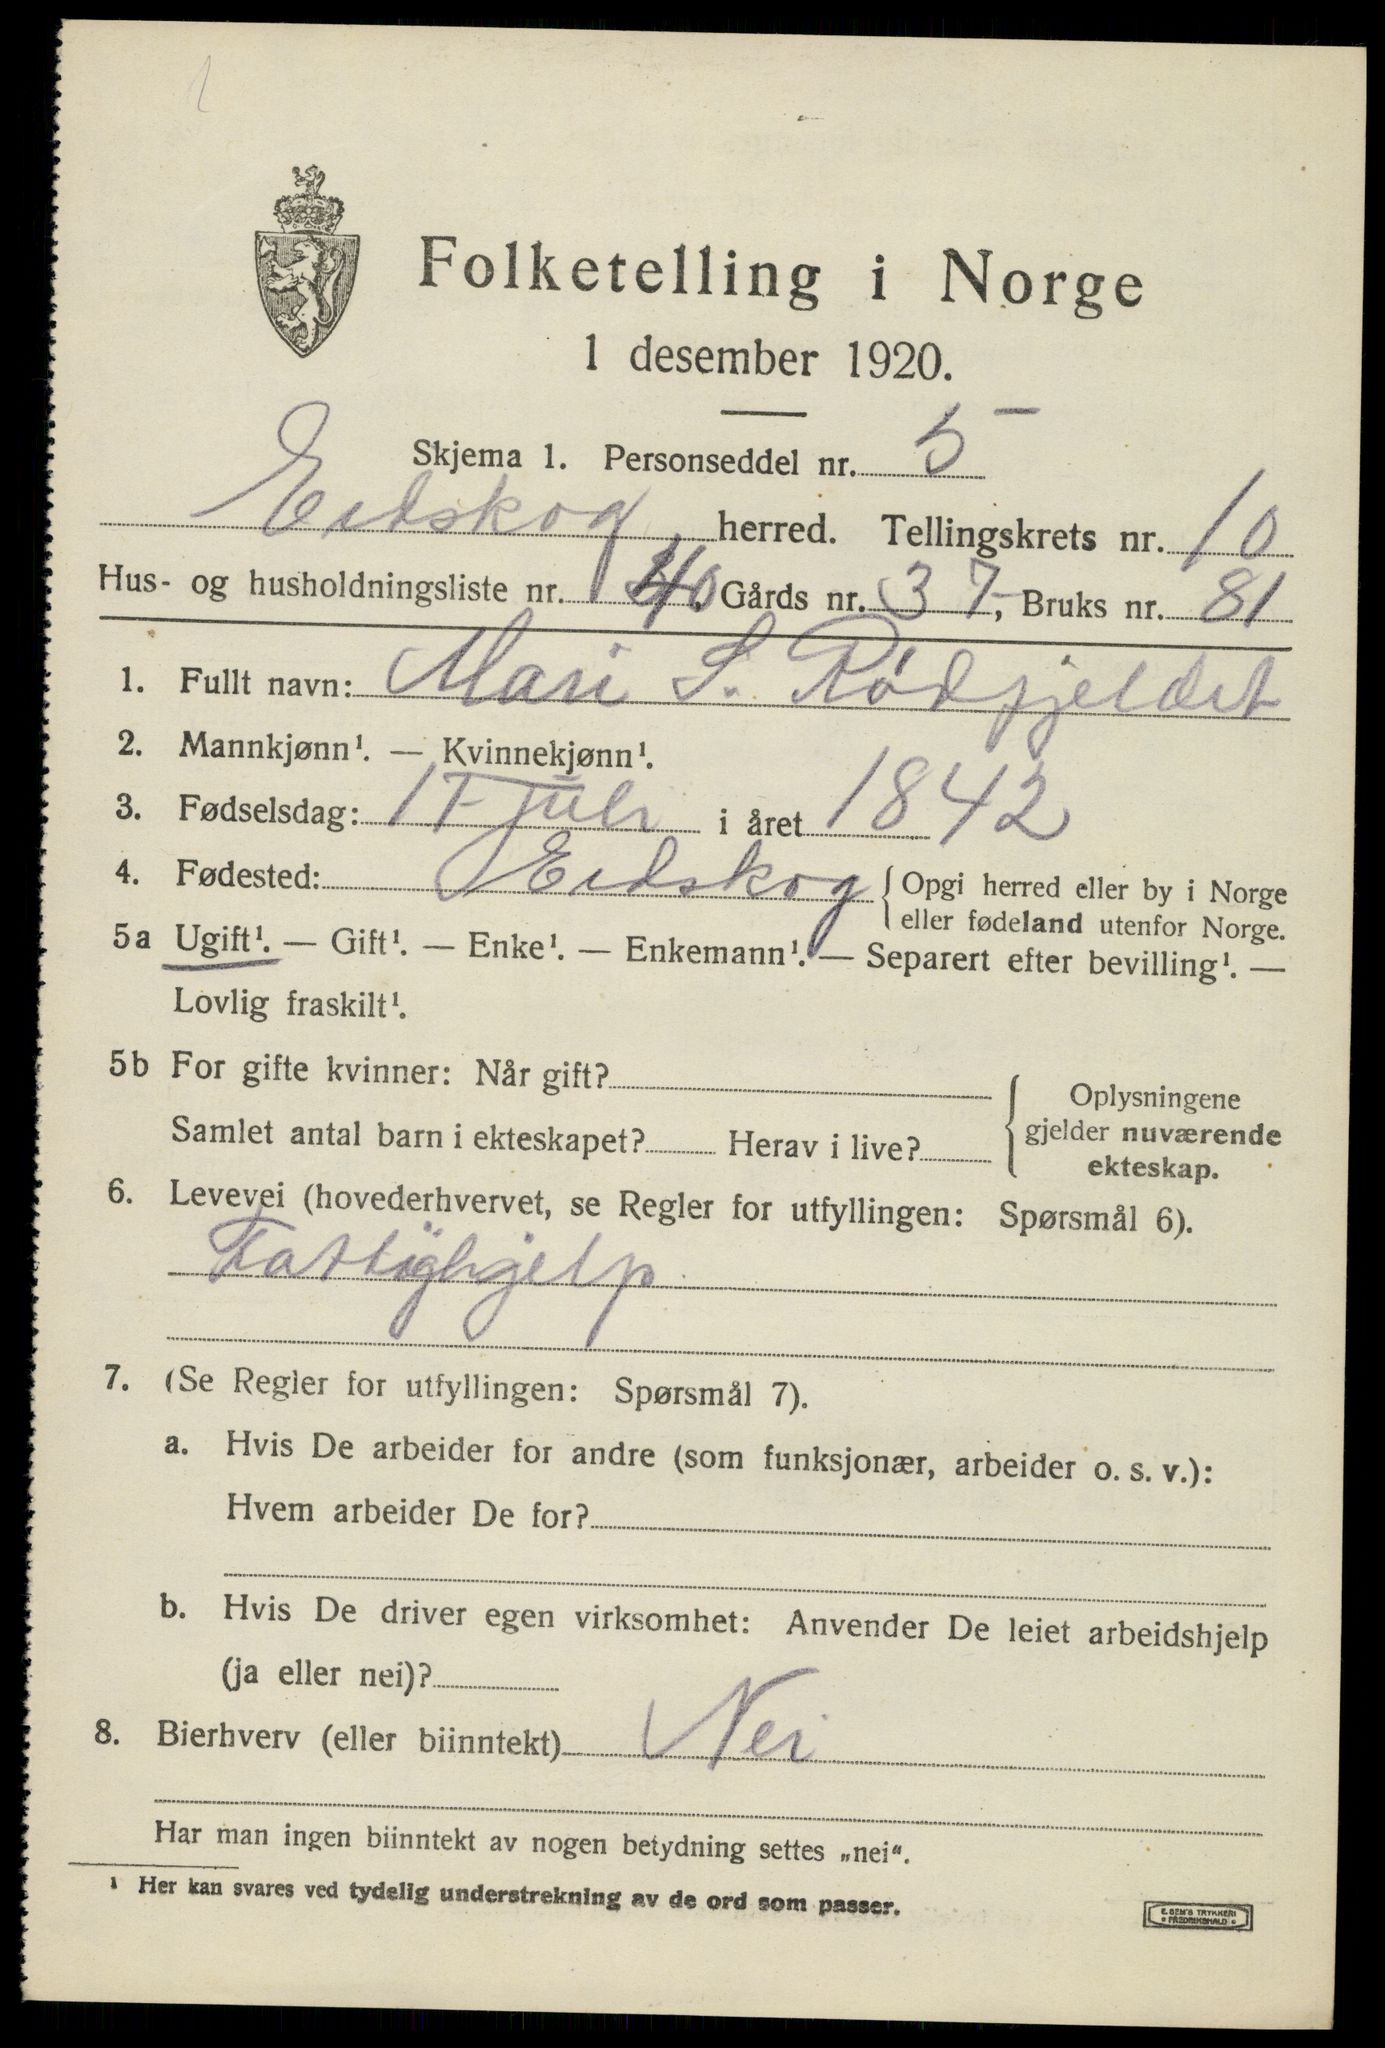 Folketelling i Norge
1 desember 1920.
Skjema 1. Personseddel nr. 5
Eidskog herred. Tellingskrets nr. 10
Hus- og husholdningsliste nr. 40 Gårds nr. 37, Bruks nr. 81
1. Fullt navn: Mari S. Rødfjeldet
2. Mannkjønn¹. — Kvinnekjønn¹.
3. Fødselsdag: 17 Juli i året 1842
4. Fødested: Eidskog { Opgi herred eller by i Norge
eller fødeland utenfor Norge.
5a Ugift¹. — Gift¹. — Enke¹. — Enkemann¹. — Separert efter bevilling¹. —
Lovlig fraskilt¹.
5b For gifte kvinner: Når gift?
Samlet antal barn i ekteskapet? Herav i live?
Oplysningene
gjelder nuværende
ekteskap.
6. Levevei (hovederhvervet, se Regler for utfyllingen: Spørsmål 6).
Fattighjelp
7. (Se Regler for utfyllingen: Spørsmål 7).
a. Hvis De arbeider for andre (som funksjonær, arbeider o. s. v.):
Hvem arbeider De for?
b. Hvis De driver egen virksomhet: Anvender De leiet arbeidshjelp
(ja eller nei)?
8. Bierhverv (eller biinntekt) Nei
Har man ingen biinntekt av nogen betydning settes „nei".
¹ Her kan svares ved tydelig understrekning av de ord som passer.
E. SEM'S TRYKKERI
FREDRIKSHALD